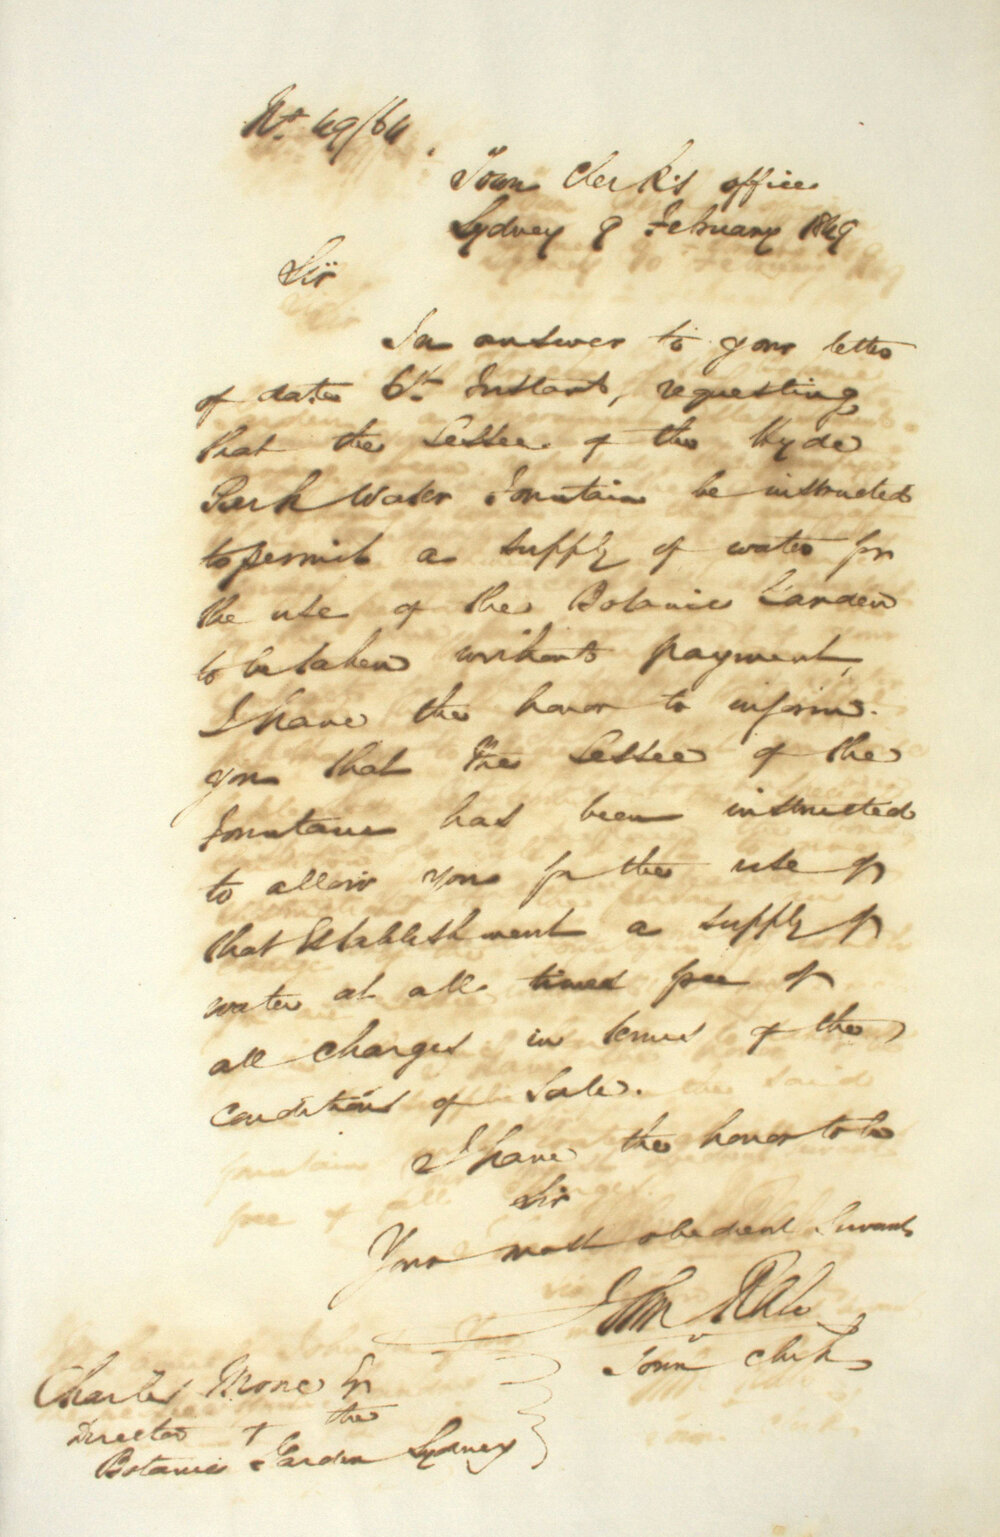 No. 49/64
Town Clerk's office
Sydney 9 February 1849
Sir
In answer to your letter
of date 6th Instant, requesting
that the Lessee of the Hyde
Park Water Fountain be instructed
to permit a supply of water for
the use of the Botanic Garden
to be taken without payment,
I have the honor to inform
you that the Lessee of the
Fountain has been instructed
to allow you for the use of
that Establishment a supply of
water at all times free of
all charges in terms of the
conditions of Sale.
I have the honor to be
Sir
Your most obedient Servant
John
Town Clerk
Charles Moore Esqr
Director of the
Botanic Garden Sydney